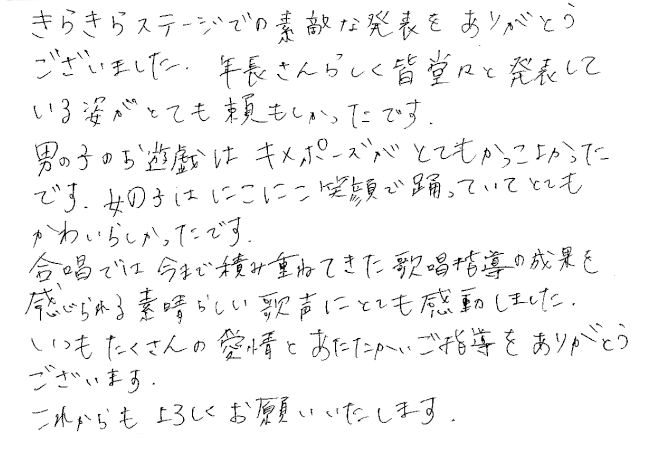 きらきらステージでの素敵な発表をありがとう
ございました. 年長さんらしく皆堂々と発表して
いる姿がとても頼もしかったです.
男の子のお遊戯はキメポーズがとてもかっこよかった
です. 女の子はにこにこ笑顔で踊っていてとても
かわいらしかったです.
合唱では今まで積み重ねてきた歌唱指導の成果を
感じられる素晴らしい歌声にとても感動しました.
いつもたくさんの愛情とあたたかいご指導をありがとう
ございます.
これからも よろしくお願いいたします.